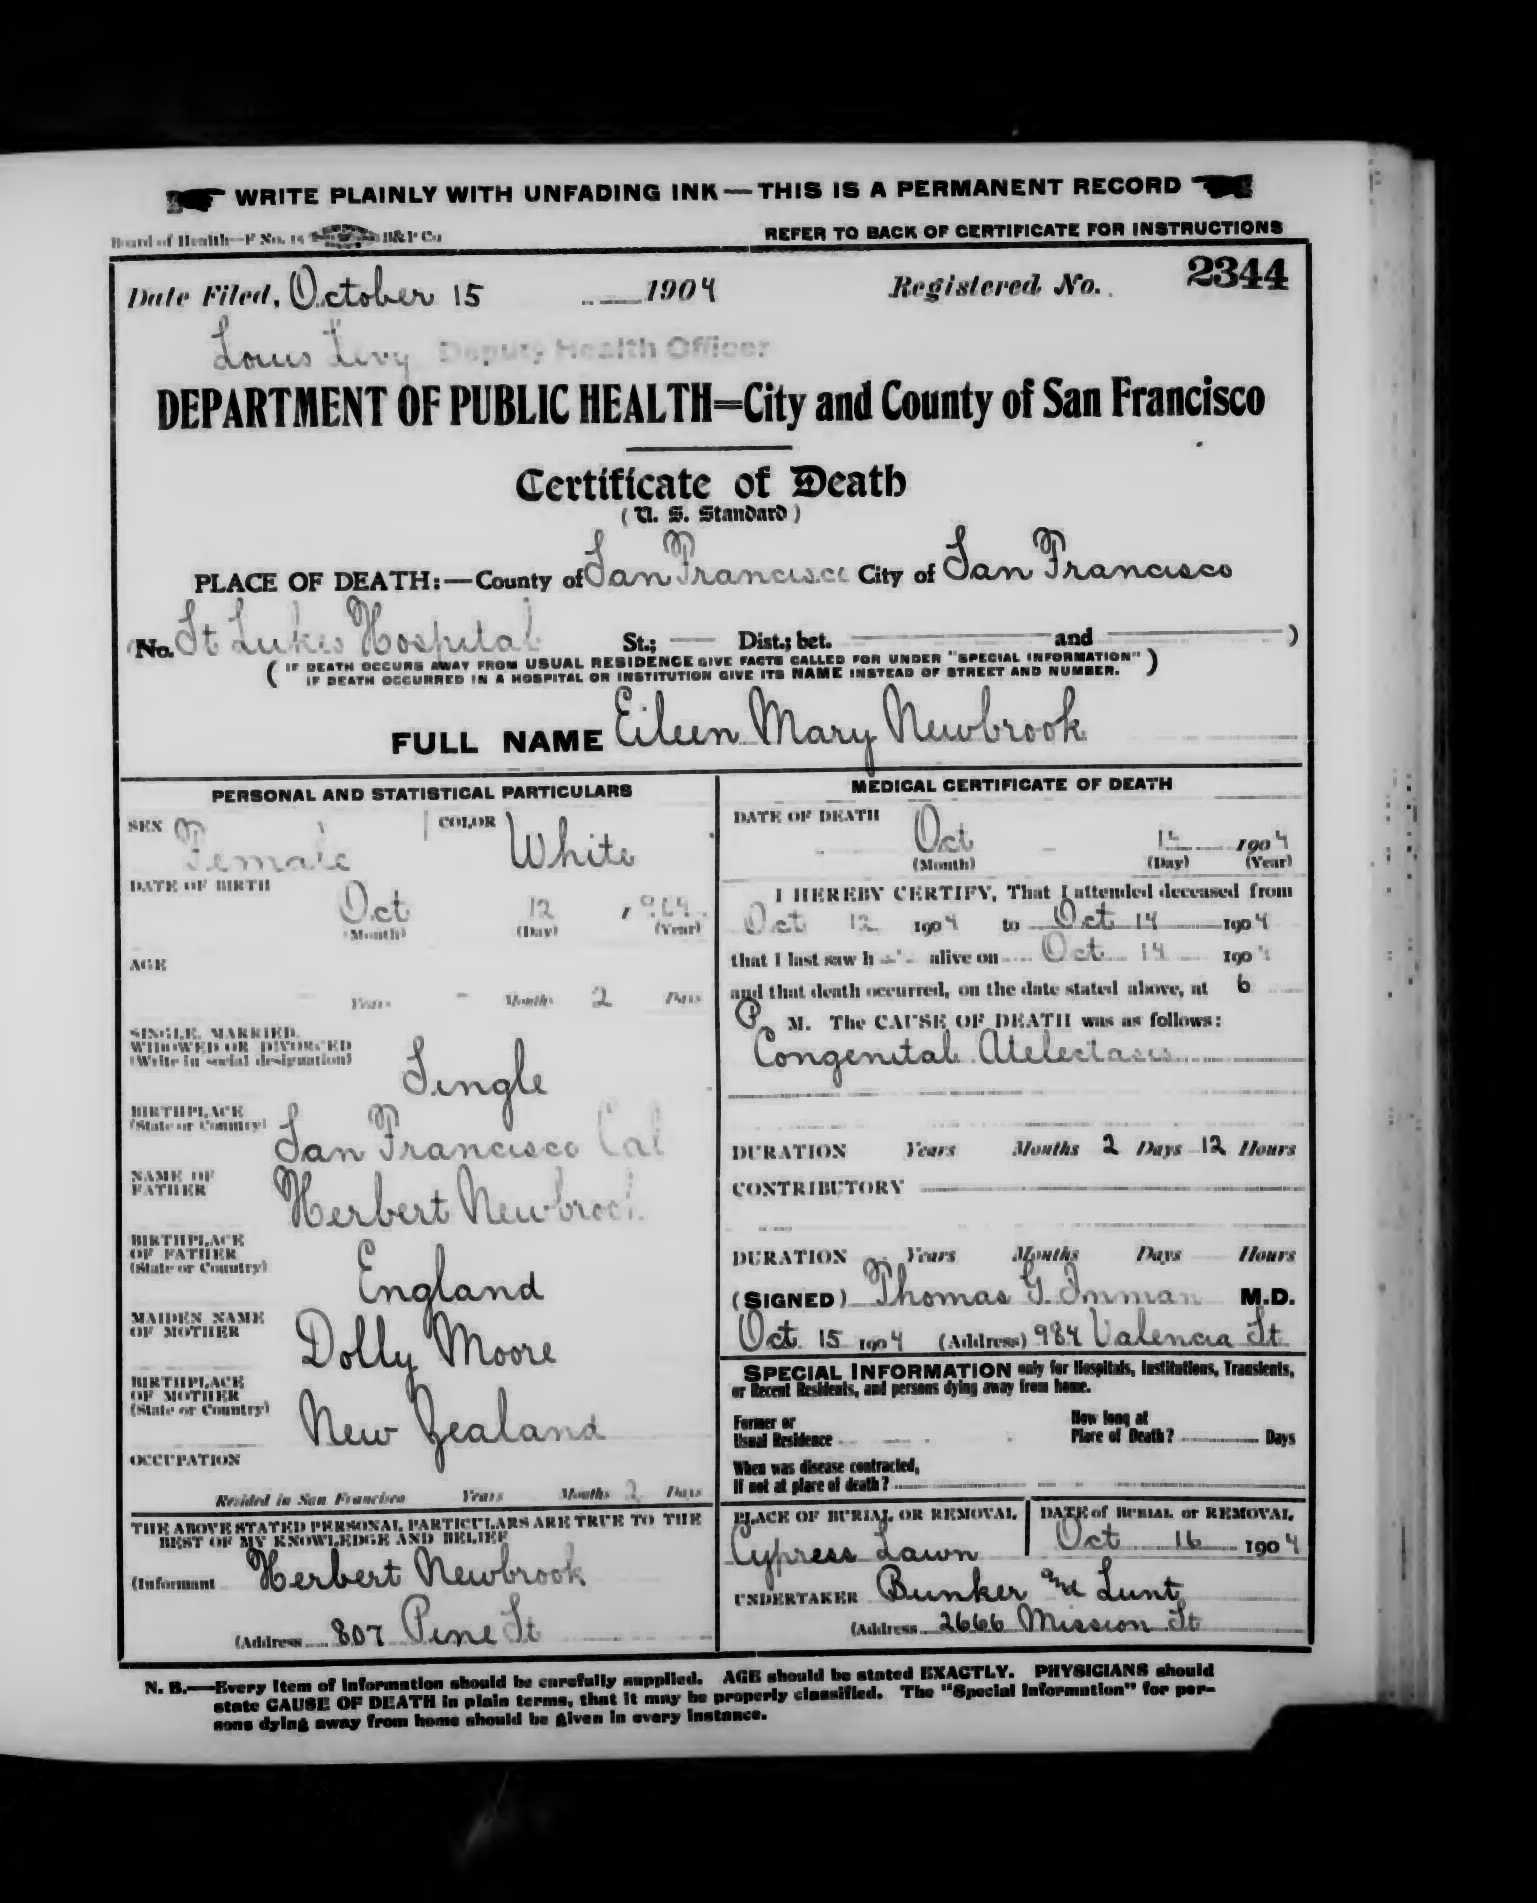 WRITE PLAINLY WITH UNFADING INK — THIS IS A PERMANENT RECORD
Board of Health—F No. 15 B&P Co
REFER TO BACK OF CERTIFICATE FOR INSTRUCTIONS
Date Filed, October 15 1904 Registered No. 2344
Louis Levy Deputy Health Officer
DEPARTMENT OF PUBLIC HEALTH=City and County of San Francisco
Certificate of Death
(U. S. Standard)
PLACE OF DEATH:—County of San Francisco City of San Francisco
(No. St Lukes Hospital St.; Dist.; bet. and )
( IF DEATH OCCURS AWAY FROM USUAL RESIDENCE GIVE FACTS CALLED FOR UNDER "SPECIAL INFORMATION"
IF DEATH OCCURRED IN A HOSPITAL OR INSTITUTION GIVE ITS NAME INSTEAD OF STREET AND NUMBER. )
FULL NAME Eileen Mary Newbrook
PERSONAL AND STATISTICAL PARTICULARS
SEX Female COLOR White
DATE OF BIRTH
Oct 12 1904
(Month) (Day) (Year)
AGE
Years Months 2 Days
SINGLE, MARRIED,
WIDOWED OR DIVORCED
(Write in social designation)
Single
BIRTHPLACE
(State or Country)
San Francisco Cal
NAME OF
FATHER
Herbert Newbrook
BIRTHPLACE
OF FATHER
(State or Country)
England
MAIDEN NAME
OF MOTHER
Dolly Moore
BIRTHPLACE
OF MOTHER
(State or Country)
New Zealand
OCCUPATION
Resided in San Francisco Years Months 2 Days
THE ABOVE STATED PERSONAL PARTICULARS ARE TRUE TO THE
BEST OF MY KNOWLEDGE AND BELIEF
(Informant Herbert Newbrook
(Address 807 Pine St
MEDICAL CERTIFICATE OF DEATH
DATE OF DEATH
Oct 1904
(Month) (Day) (Year)
I HEREBY CERTIFY, That I attended deceased from
Oct 12 1904 to Oct 14 1904
that I last saw h alive on Oct 14 1904
and that death occurred, on the date stated above, at 6
P. M. The CAUSE OF DEATH was as follows:
Congenital Atelectasis
DURATION Years Months 2 Days 12 Hours
CONTRIBUTORY
DURATION Years Months Days Hours
(SIGNED) Thomas G. Inman M.D.
Oct 15 1904 (Address) 984 Valencia St
SPECIAL INFORMATION only for Hospitals, Institutions, Transients,
or Recent Residents, and persons dying away from home.
Former or
Usual Residence
How long at
Place of Death? Days
When was disease contracted,
If not at place of death?
PLACE OF BURIAL OR REMOVAL
Cypress Lawn
DATE of BURIAL or REMOVAL
Oct 16 1904
UNDERTAKER Bunker and Lunt
(Address 2666 Mission St
N. B.—Every item of information should be carefully supplied. AGE should be stated EXACTLY. PHYSICIANS should
state CAUSE OF DEATH in plain terms, that it may be properly classified. The "Special Information" for per-
sons dying away from home should be given in every instance.